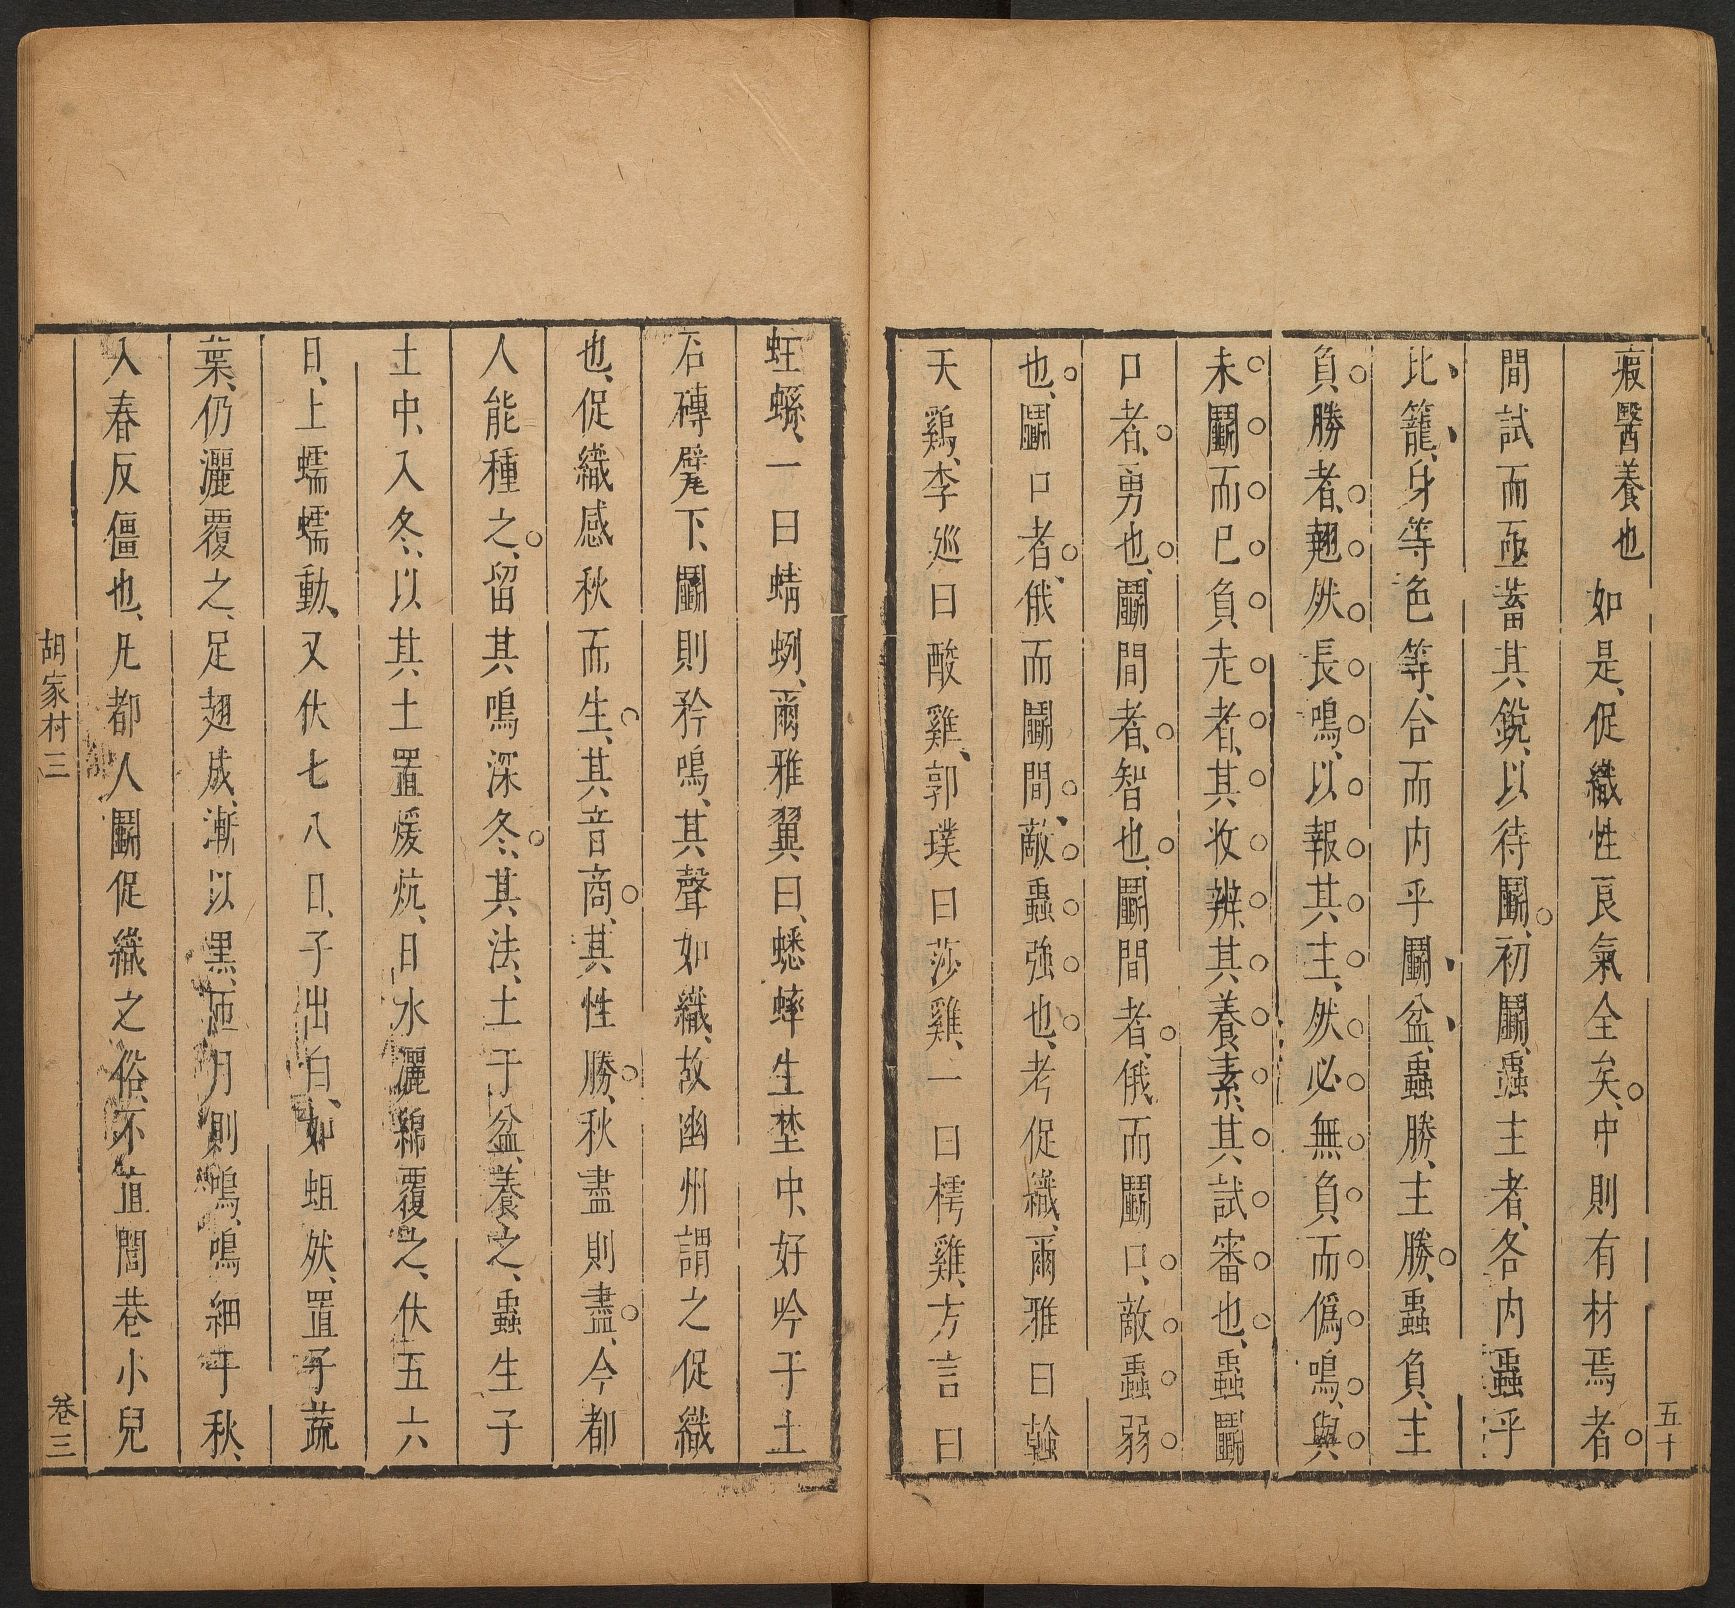 瘕醫養也如是促織性良氣全矣中則有材焉者
間試而亟蓄其銳以待鬬初鬬蟲主者各內蟲乎
比籠身等色等合而內乎鬬盆蟲勝主勝蟲負主
負勝者翹然長鳴以報其主然必無負而僞鳴與
未鬬而已負走者其收辨其養素其試審也蟲鬬
口者勇也鬬間者智也鬬間者俄而鬬口敵蟲弱
也鬬口者俄而鬬間敵蟲強也考促織爾雅曰翰
天鷄李巡曰酸雞郭璞曰莎雞一曰樗雞方言曰
五十
蚟蟋一曰蜻蛚爾雅翼曰蟋蟀生壄中好吟于土
石磚甓下鬬則矜鳴其聲如織故幽州謂之促織
也促織感秋而生其音商其性勝秋盡則盡今都
人能種之留其鳴深冬其法土于盆養之蟲生子
土中入冬以其土置煖炕日水灑綿覆之伏五六
日上蠕蠕動又伏七八日子出白如蛆然置子蔬
葉仍灑覆之足翅成漸以黑匝月則鳴鳴細于秋
入春反僵也凡都人鬬促織之俗不直閭巷小兒
胡家村三
卷三